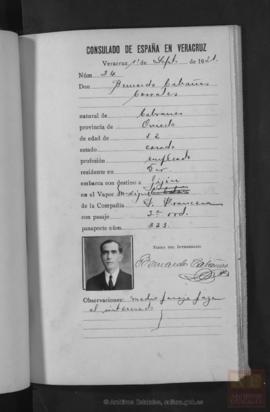 CONSULADO DE ESPAÑA EN VERACRUZ
Veracruz, 1º de Sept. de 1921.
Núm. 34
Don Bernardo Cabañas
Corrales
natural de Cabranes
provincia de Oviedo
de edad de 52
estado casado
profesión empleado
residente en
embarca con destino a Gijón
en el Vapor
de la Compañía
con pasaje 3ª ord.
pasaporte núm. 323.
FIRMA DEL INTERESADO
Bernardo Cabañas
Observaciones: medio pasaje paga
el interesado
© Archivos Estatales, cultura.gob.es